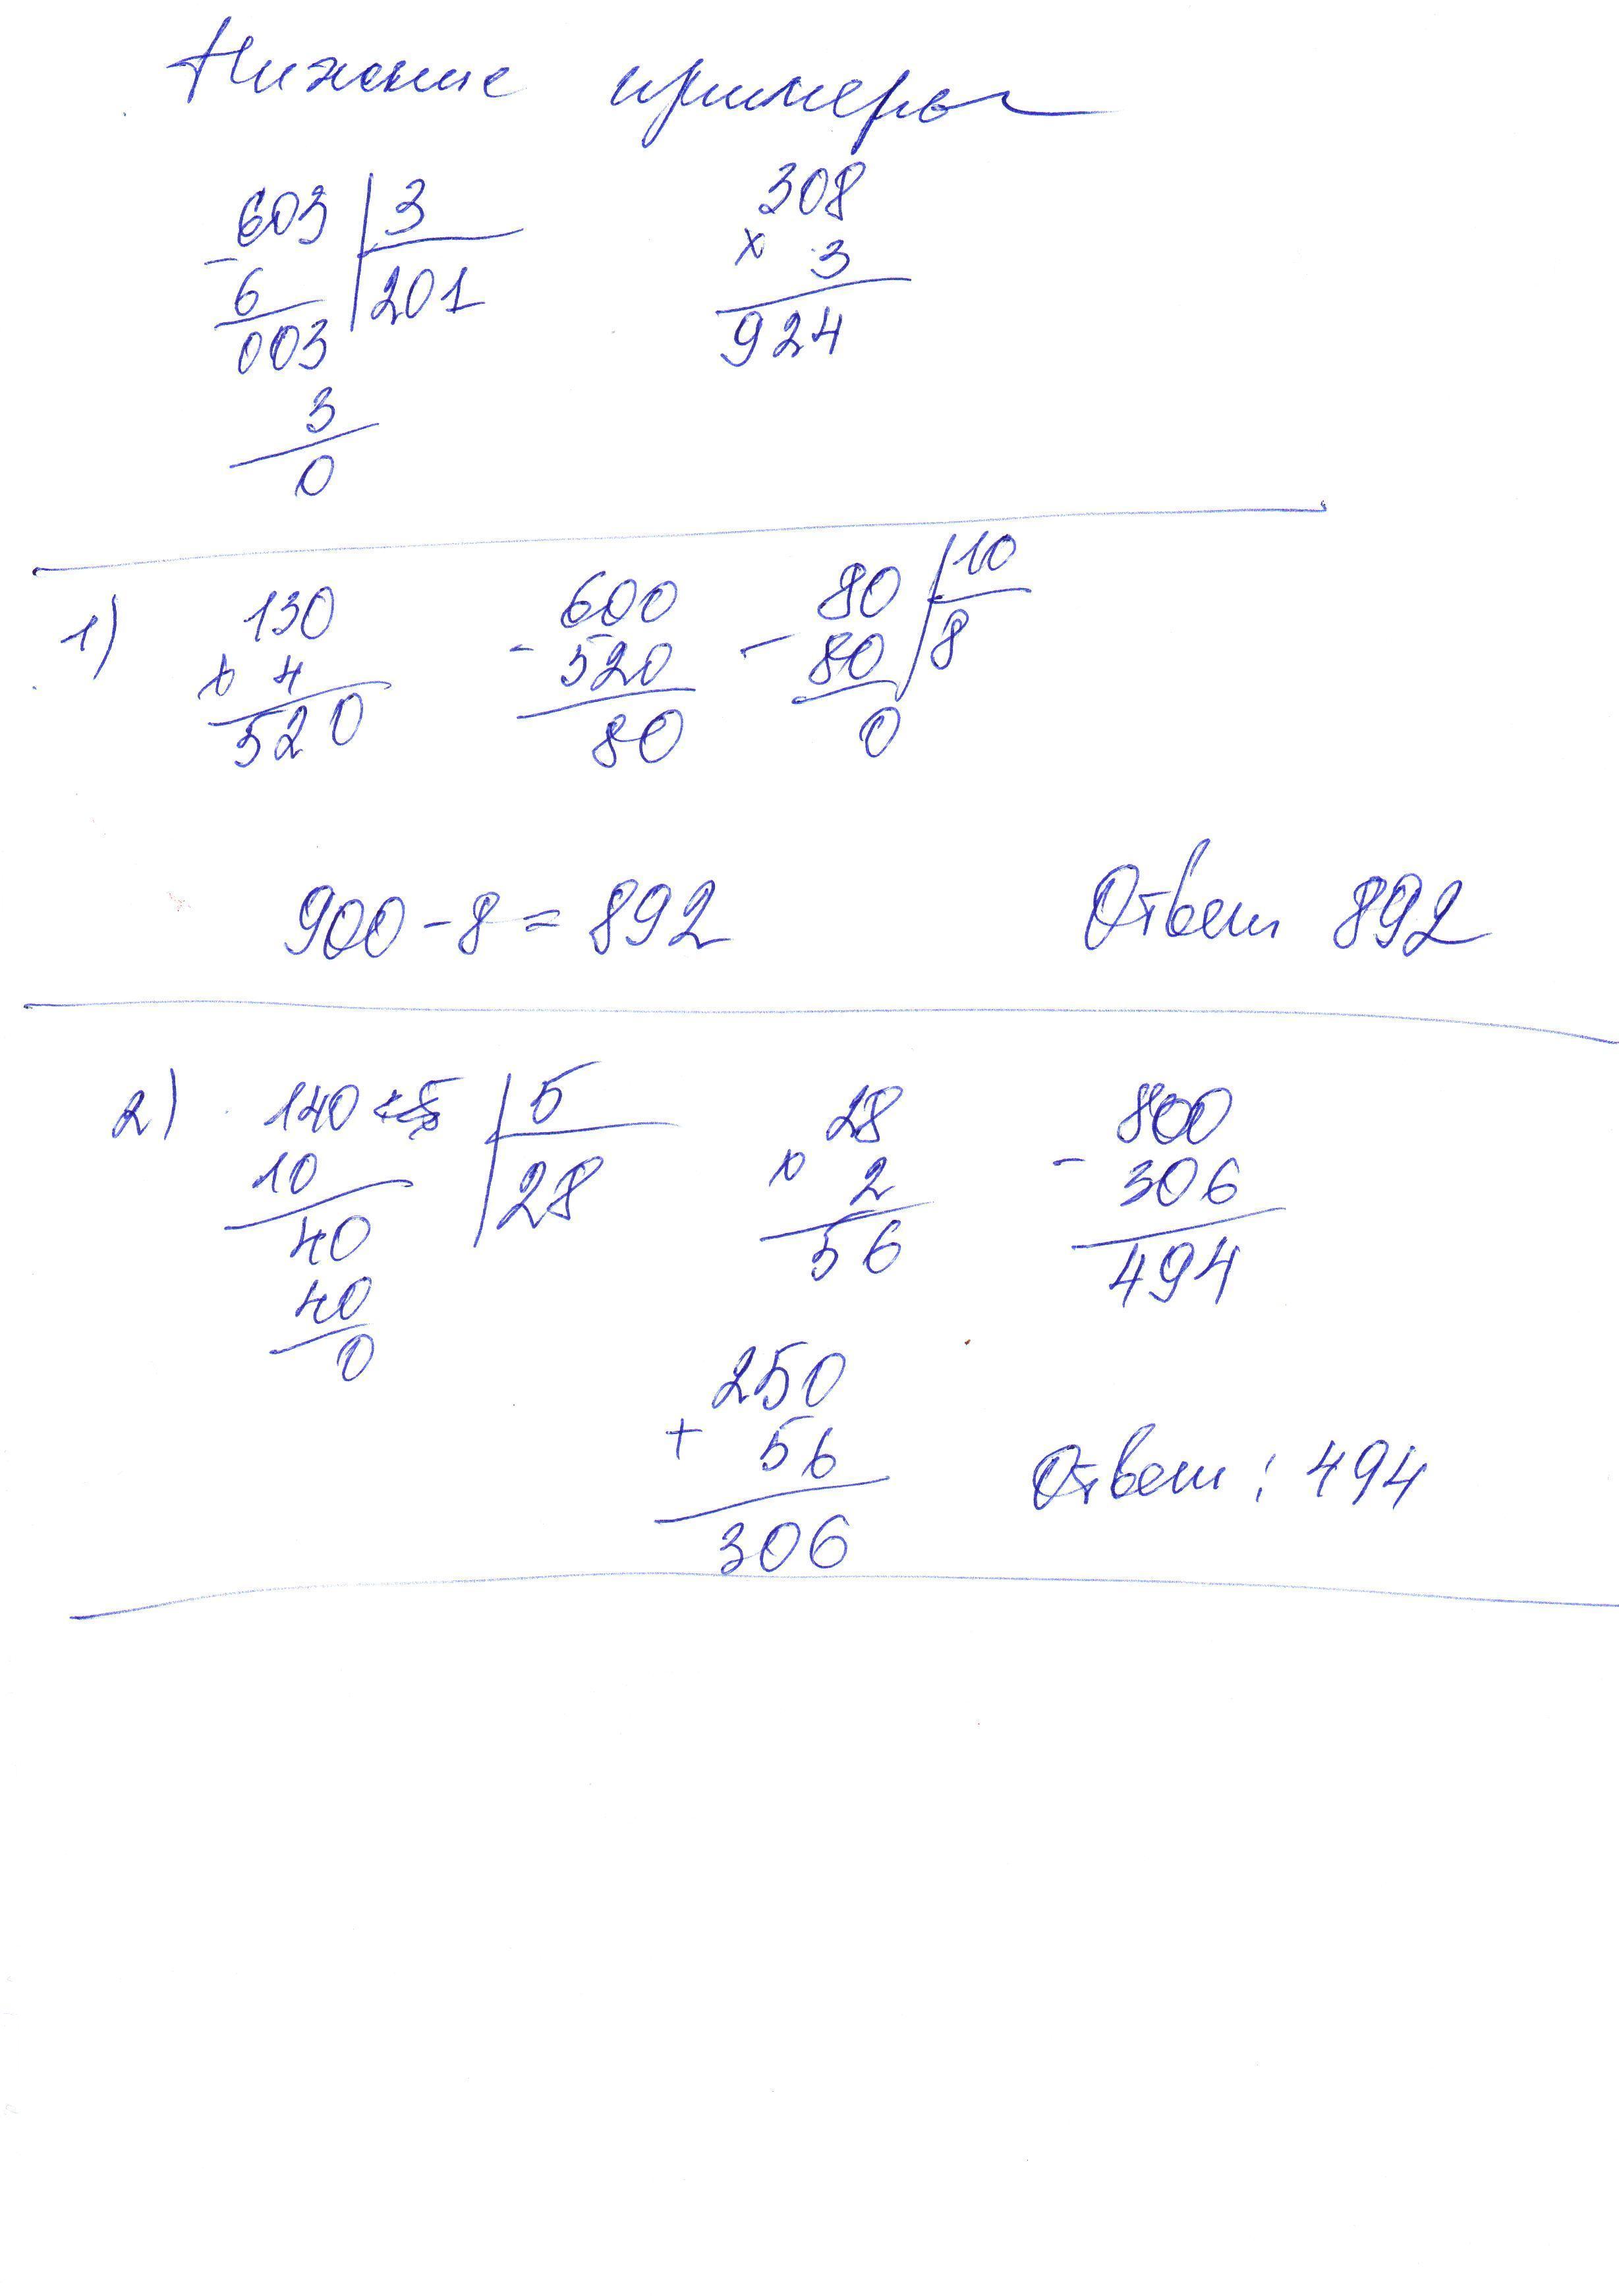 Нижние примеры
603 | 3 308
- 6 | 201 × 3
003 924
3
0
1) 130 600 80 | 10
× 4 - 520 - 80 | 8
520 80 0
900 - 8 = 892 Ответ 892
2) 140 | 5 28 800
10 | 28 × 2 - 306
40 56 494
40
0 250
+ 56 Ответ: 494
306